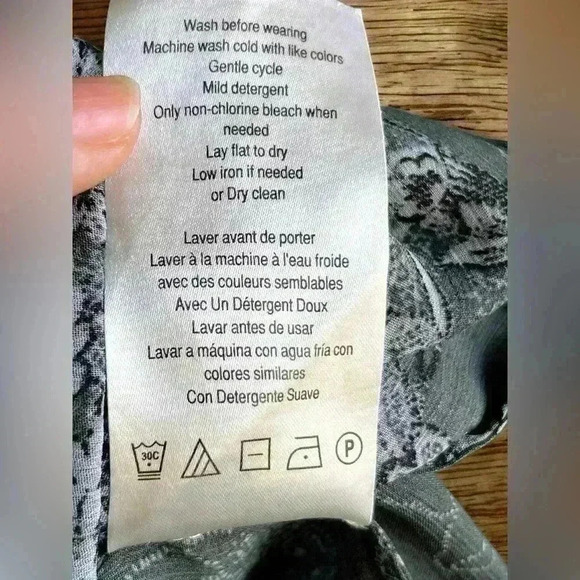 Wash before wearing
Machine wash cold with like colors
Gentle cycle
Mild detergent
Only non-chlorine bleach when
needed
Lay flat to dry
Low iron if needed
or Dry clean
Laver avant de porter
Laver à la machine à l'eau froide
avec des couleurs semblables
Avec Un Détergent Doux
Lavar antes de usar
Lavar a máquina con agua fría con
colores similares
Con Detergente Suave
30C P